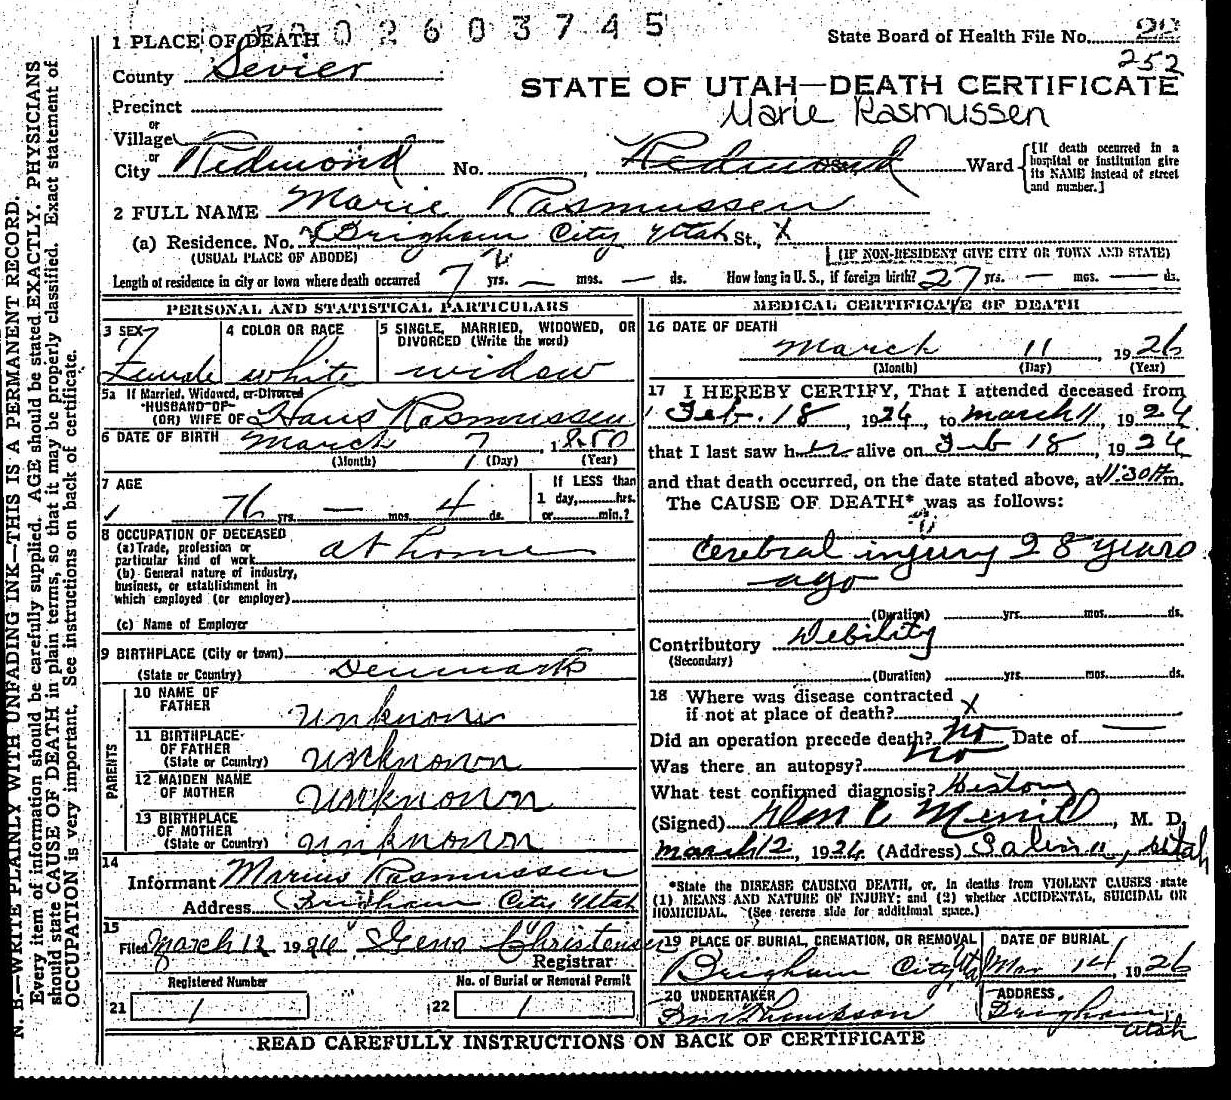 2 6 0 3 7 4 5
1 PLACE OF DEATH
State Board of Health File No. 22
252
County Sevier
STATE OF UTAH—DEATH CERTIFICATE
Precinct
Marie Rasmussen
or
Village
or
City Redmond No. , Redmond Ward
[If death occurred in a hospital or institution give its NAME instead of street and number.]
2 FULL NAME Marie Rasmussen
(a) Residence. No. Brigham City Utah St., X
(USUAL PLACE OF ABODE) (IF NON-RESIDENT GIVE CITY OR TOWN AND STATE)
Length of residence in city or town where death occurred 7 yrs. — mos. ds. How long in U. S., if foreign birth? 27 yrs. — mos. — ds.
PERSONAL AND STATISTICAL PARTICULARS
3 SEX Female
4 COLOR OR RACE white
5 SINGLE, MARRIED, WIDOWED, OR DIVORCED (Write the word) widow
5a If Married, Widowed, or Divorced
HUSBAND OF
(OR) WIFE OF Hans Rasmussen
6 DATE OF BIRTH March 7, 1850
(Month) (Day) (Year)
7 AGE 76 yrs. — mos. 4 ds.
If LESS than
1 day, hrs.
or min.?
8 OCCUPATION OF DECEASED
(a) Trade, profession or
particular kind of work at home
(b) General nature of industry,
business, or establishment in
which employed (or employer)
(c) Name of Employer
9 BIRTHPLACE (City or town)
(State or Country) Denmark
PARENTS
10 NAME OF
FATHER unknown
11 BIRTHPLACE
OF FATHER
(State or Country) unknown
12 MAIDEN NAME
OF MOTHER unknown
13 BIRTHPLACE
OF MOTHER
(State or Country) unknown
14
Informant Marius Rasmussen
Address Brigham City Utah
15
Filed March 12 1926 Gena Christensen
Registrar
Registered Number No. of Burial or Removal Permit
21 1 22 1
MEDICAL CERTIFICATE OF DEATH
16 DATE OF DEATH
March 11, 1926
(Month) (Day) (Year)
17 I HEREBY CERTIFY, That I attended deceased from
Feb. 18, 1926, to March 11, 1926
that I last saw her alive on Feb 18, 1926
and that death occurred, on the date stated above, at 11:30 m.
The CAUSE OF DEATH* was as follows:
Cerebral injury 28 years
ago
(Duration) yrs. mos. ds.
Contributory Debility
(Secondary)
(Duration) yrs. mos. ds.
18 Where was disease contracted
if not at place of death? X
Did an operation precede death? no Date of —
Was there an autopsy? no
What test confirmed diagnosis? History
(Signed) Merrill, M. D.
March 12, 1926 (Address) Salina, Utah
*State the DISEASE CAUSING DEATH, or, in deaths from VIOLENT CAUSES state
(1) MEANS AND NATURE OF INJURY; and (2) whether ACCIDENTAL, SUICIDAL OR
HOMICIDAL. (See reverse side for additional space.)
19 PLACE OF BURIAL, CREMATION, OR REMOVAL DATE OF BURIAL
Brigham City Utah Mar 14, 1926
20 UNDERTAKER ADDRESS
Brigham, Utah
READ CAREFULLY INSTRUCTIONS ON BACK OF CERTIFICATE
N. B.—WRITE PLAINLY WITH UNFADING INK—THIS IS A PERMANENT RECORD.
Every item of information should be carefully supplied. AGE should be stated EXACTLY. PHYSICIANS
should state CAUSE OF DEATH in plain terms, so that it may be properly classified. Exact statement of
OCCUPATION is very important. See instructions on back of certificate.